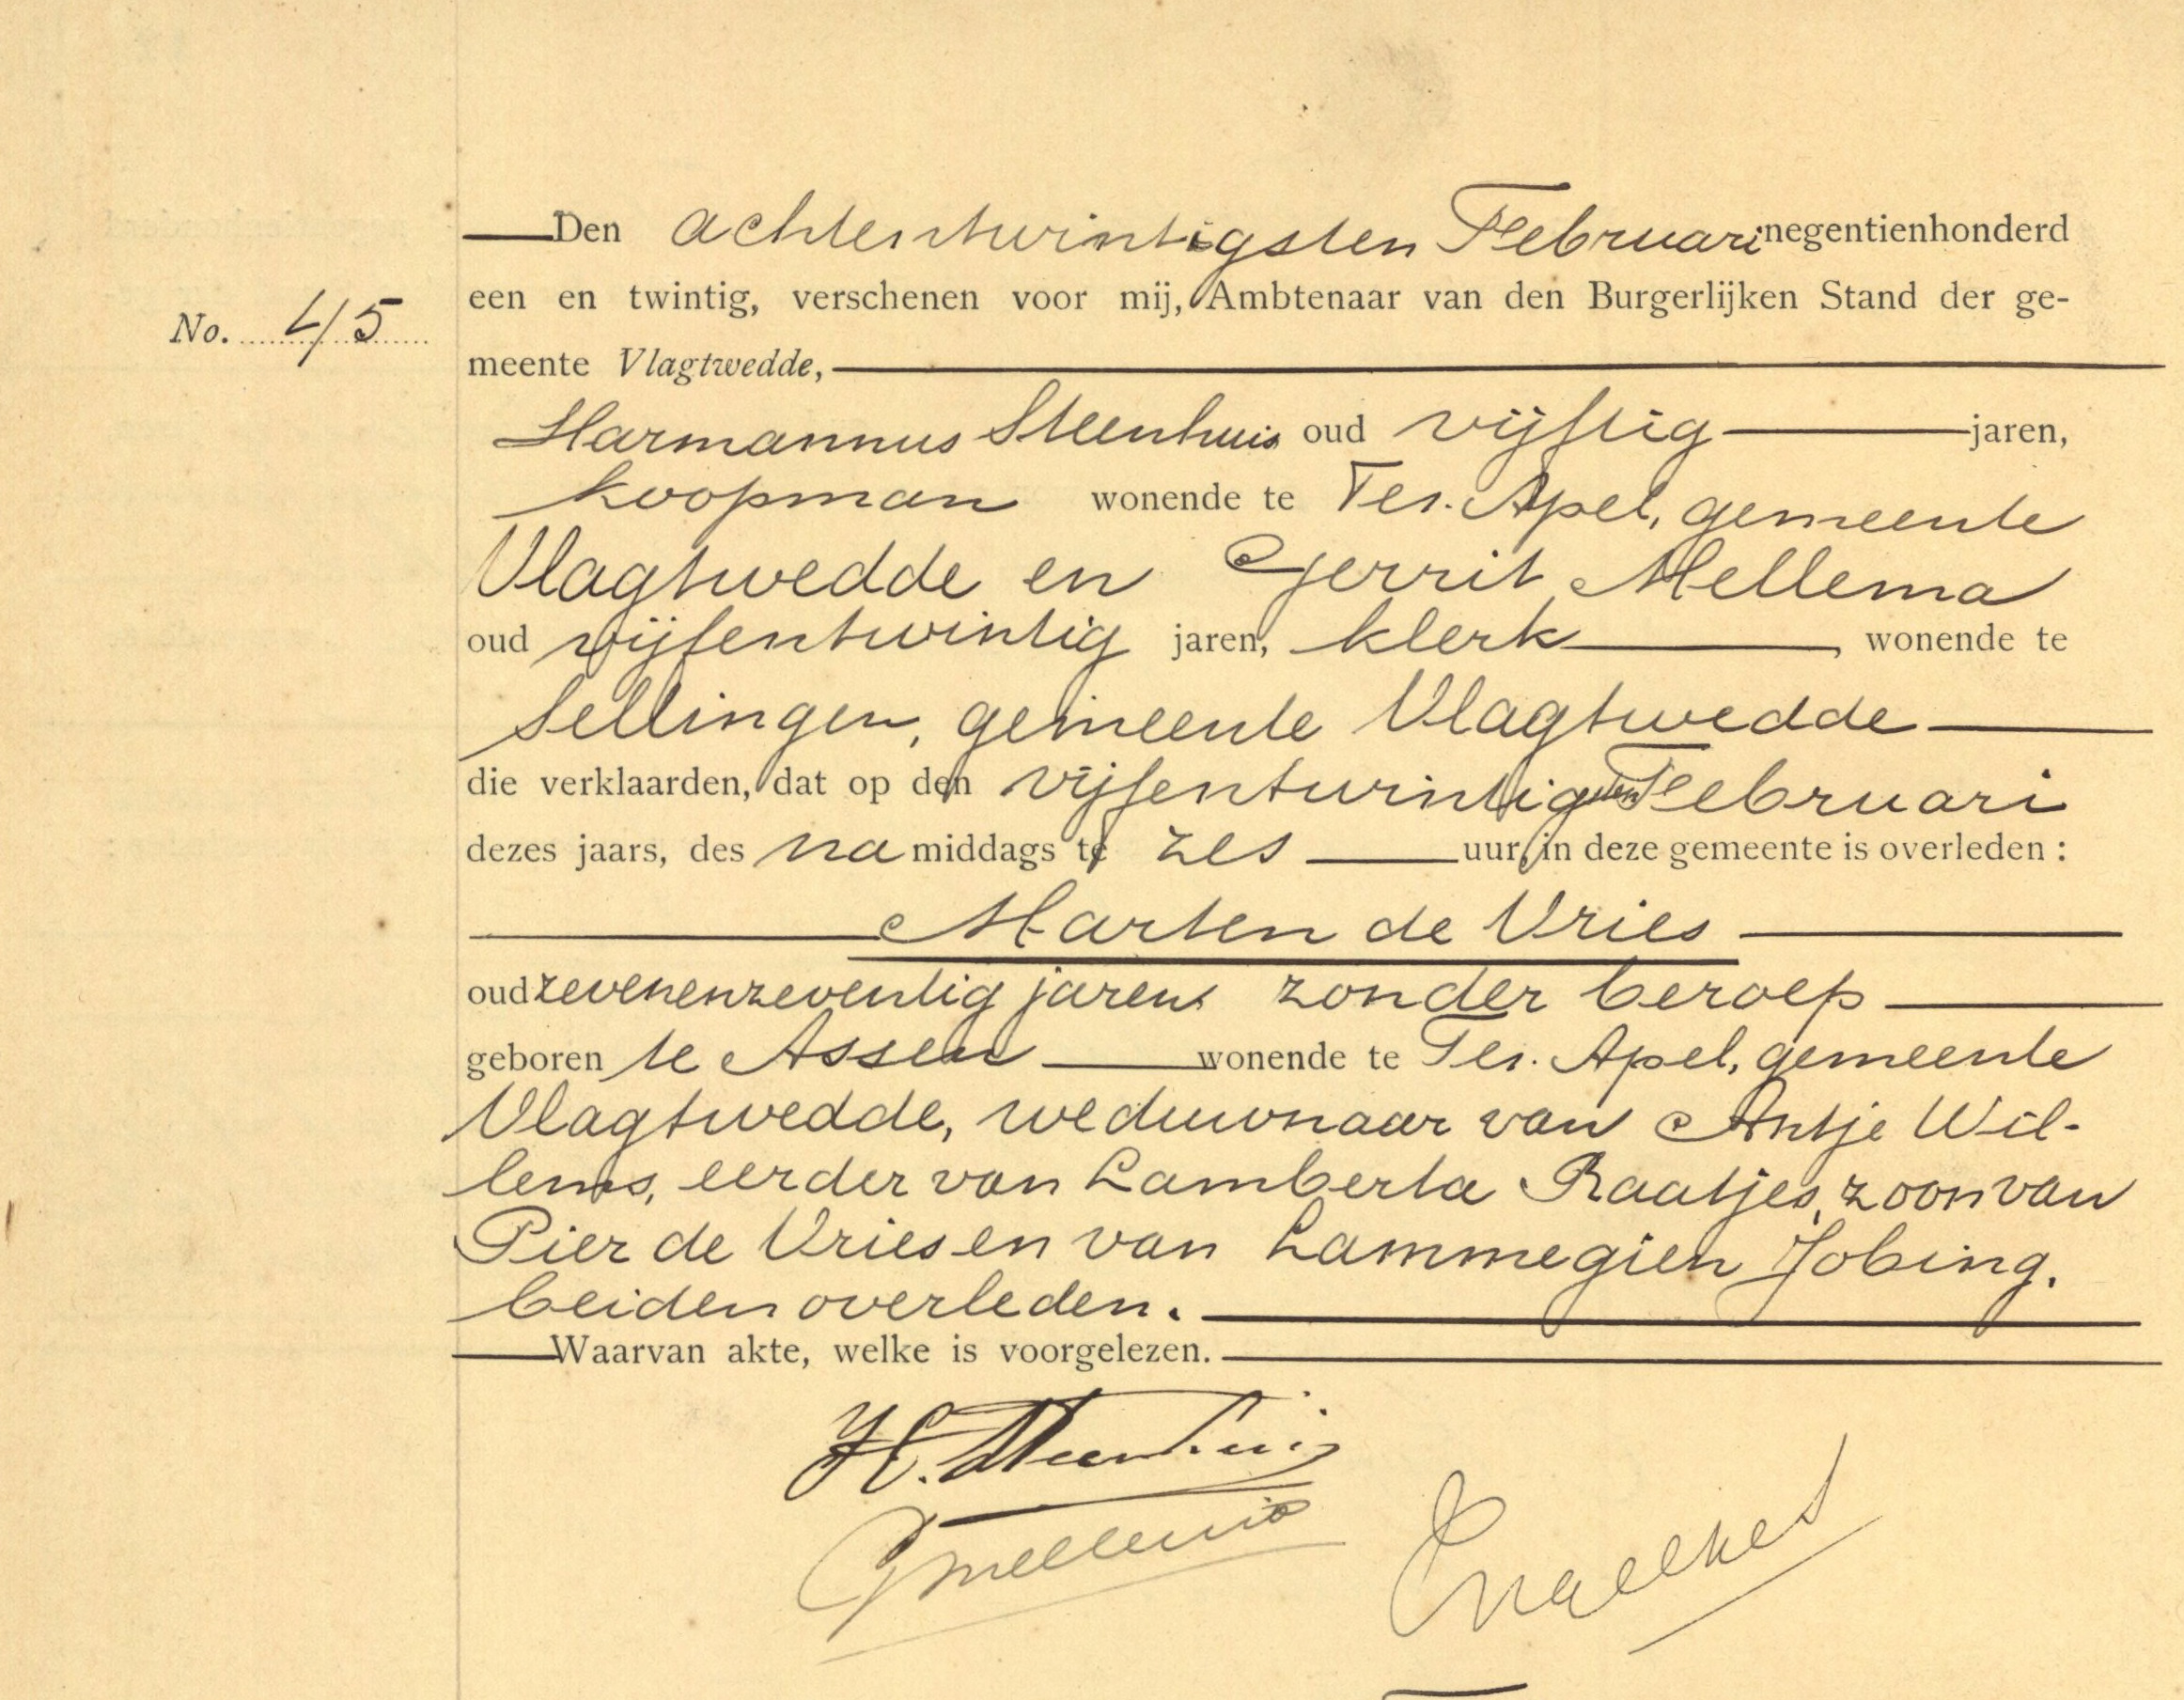 Den achtentwintigsten Februari negentienhonderd
No. 45
een en twintig, verschenen voor mij, Ambtenaar van den Burgerlijken Stand der ge-
meente Vlagtwedde,
Harmannus Steenhuis oud vijftig jaren,
koopman wonende te Ter. Apel, gemeente
Vlagtwedde en Gerrit Mellema
oud vijfentwintig jaren, klerk, wonende te
Sellingen, gemeente Vlagtwedde
die verklaarden, dat op den vijfentwintigsten Februari
dezes jaars, des namiddags te zes uur, in deze gemeente is overleden:
Marten de Vries
oud zevenenzeventig jaren, zonder beroep
geboren te Assen wonende te Ter. Apel, gemeente
Vlagtwedde, weduwnaar van Antje Wil-
lems, eerder van Lamberta Raatjes, zoon van
Pier de Vries en van Lammegien Jobing,
beiden overleden.
Waarvan akte, welke is voorgelezen.
H. Steenhuis
G Mellema